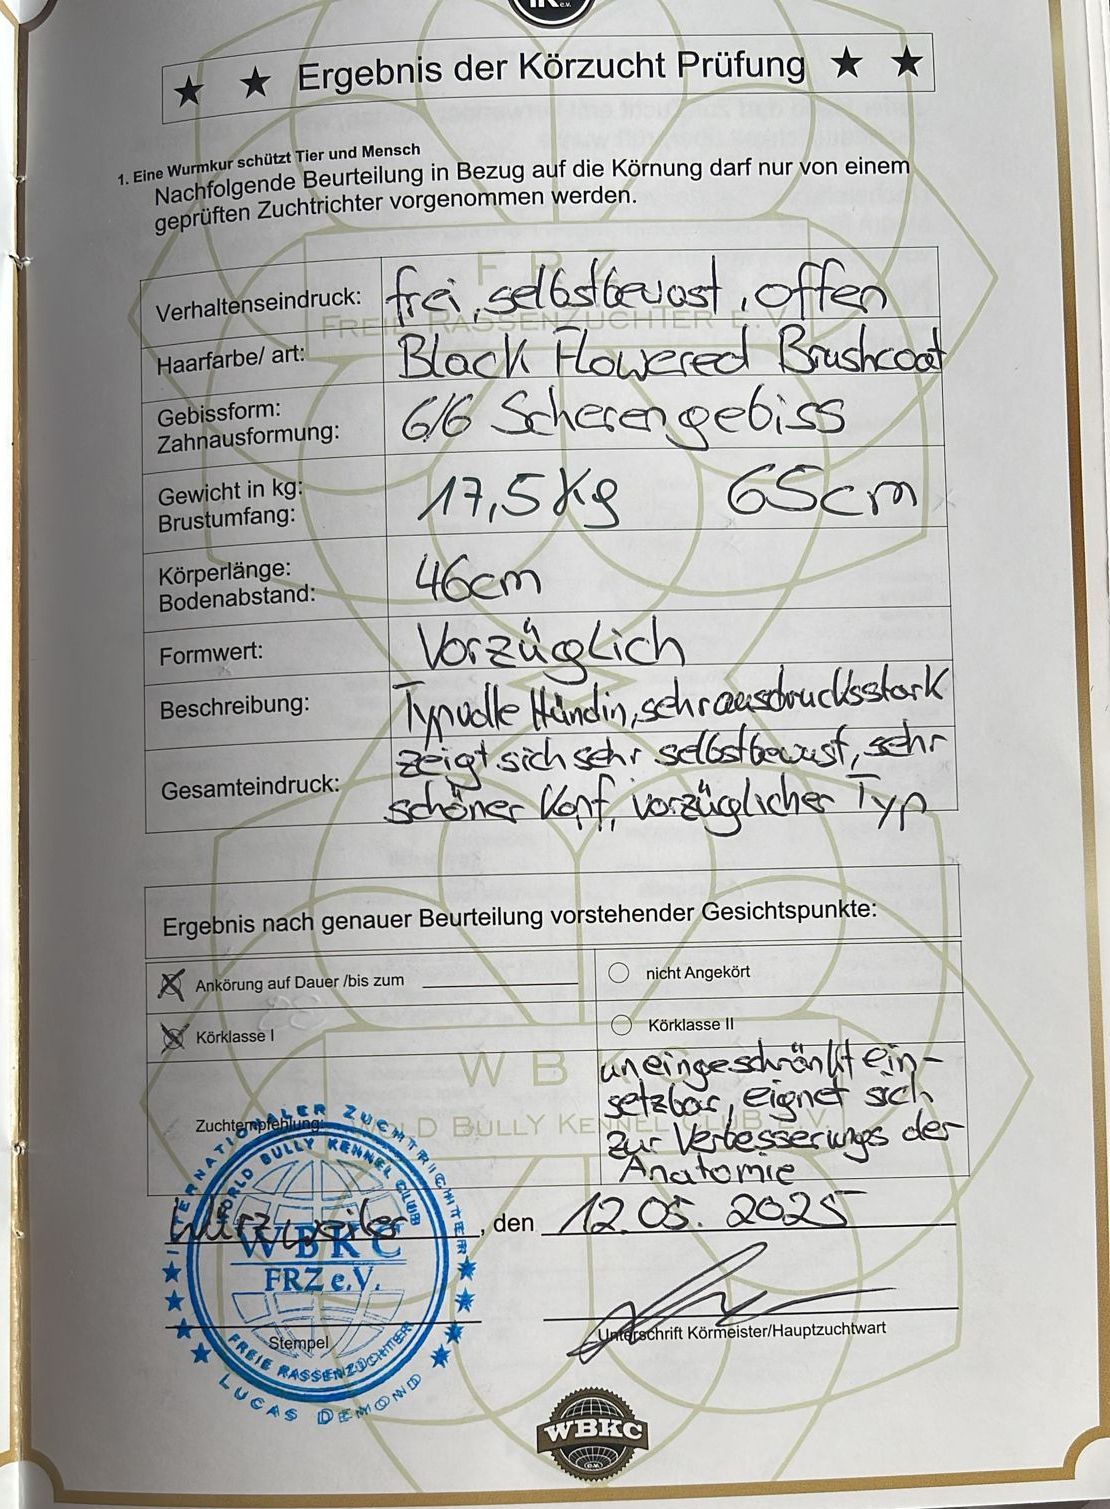 Ergebnis der Körzucht Prüfung
1. Eine Wurmkur schützt Tier und Mensch
Nachfolgende Beurteilung in Bezug auf die Körnung darf nur von einem
geprüften Zuchtrichter vorgenommen werden.
F R Z
FREIE RASSENZÜCHTER E.V.
Verhaltenseindruck: frei, selbstbewust, offen
Haarfarbe/ art: Black Flowered Brushcoat
Gebissform:
Zahnausformung: 6/6 Scherengebiss
Gewicht in kg:
Brustumfang: 17,5 kg 65cm
Körperlänge:
Bodenabstand: 46cm
Formwert: Vorzüglich
Beschreibung: Typvolle Hündin, sehr ausdrucksstark
zeigt sich sehr selbstbewust, sehr
Gesamteindruck: schöner Kopf, vorzüglicher Typ
Ergebnis nach genauer Beurteilung vorstehender Gesichtspunkte:
Ankörung auf Dauer /bis zum
nicht Angekört
Körklasse I
Körklasse II
W B K C
WOLD BULLY KENNEL CLUB E.V.
Zuchtempfehlung:
uneingeschränkt ein-
setzbar, eignet sich
zur Verbesserungs der
Anatomie
Würzweiler, den 12.05.2025
INTERNATIONALER ZUCHTRICHTER
WORLD BULLY KENNEL CLUB
WBKC
FRZ e.V.
FREIE RASSENZÜCHTER
LUCAS DEMOND
Stempel
Unterschrift Körmeister/Hauptzuchtwart
WBKC
(e.V.)